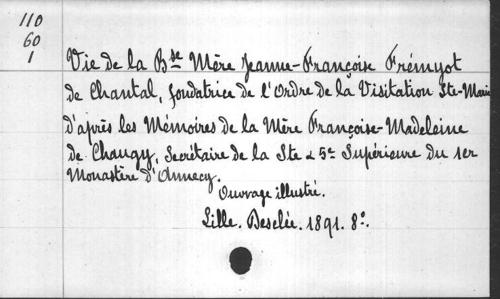 110
60
1
Vie de la Bse Mère Jeanne-Françoise Frémyot
de Chantal, fondatrice de l'Ordre de la Visitation Ste-Marie
d'après les Mémoires de la Mère Françoise-Madeleine
de Chaugy, Secrétaire de la Ste & 5e Supérieure du 1er
Monastère d'Annecy.
Ouvrage illustré.
Lille. Desclée. 1891. 8º.